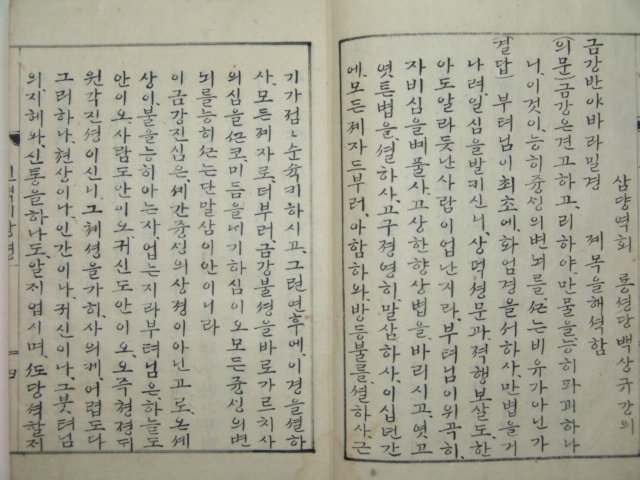 삼댱역회 룡셩당 백상규강의
금강반야바라밀경 제목을해셕함
(의문) 금강은견고하고, 리하야, 만물을능히파괴하나
니, 이것이, 능히즁생의변뇌를ᄭᅳᆫ는비유가아닌가
(결답) 부텨님이최초에, 화엄경을셔하사, 만법을거
나려, 일심을발키신니, 상덕셩문과, 젹행보살도, 한
아도알라듯난사람이업난지라, 부텨님이위곡히,
자비심을베풀사, 고상한향상법을, 바리시고, 엿고
엿튼법을셜하사, 고구졍영히, 말삼하사, 이십년간
에, 모든졔자드부러, 아함하와, 방등불를, 셜하사, 근
기가졈〻순슉키하시고, 그런연후에, 이경을셜하
사, 모든졔자로더부러, 금강불셩을바로가르치사
의심을ᄭᅳᆫ코, 미듬을내기하심이오, 모든즁생의변
뇌를능히ᄭᅳᆫ는단말삼이안이니라
이금강진심은, 셰간즁생의상졍이아닌고로, 온셰
상이, 불을능히아는사, 업는지라, 부텨님은, 하늘도
안이오, 사람도안이오, 귀신도안이오, 오주쳥졍뒤
원각진셩이신니, 그쳬셩을가히, 사의졔, 어렵도다
그러하나, 현상이나, 인간이나, 귀신이나, 그붓텨님
의, 지혜와, 신통을하나도, 알졔업시며,